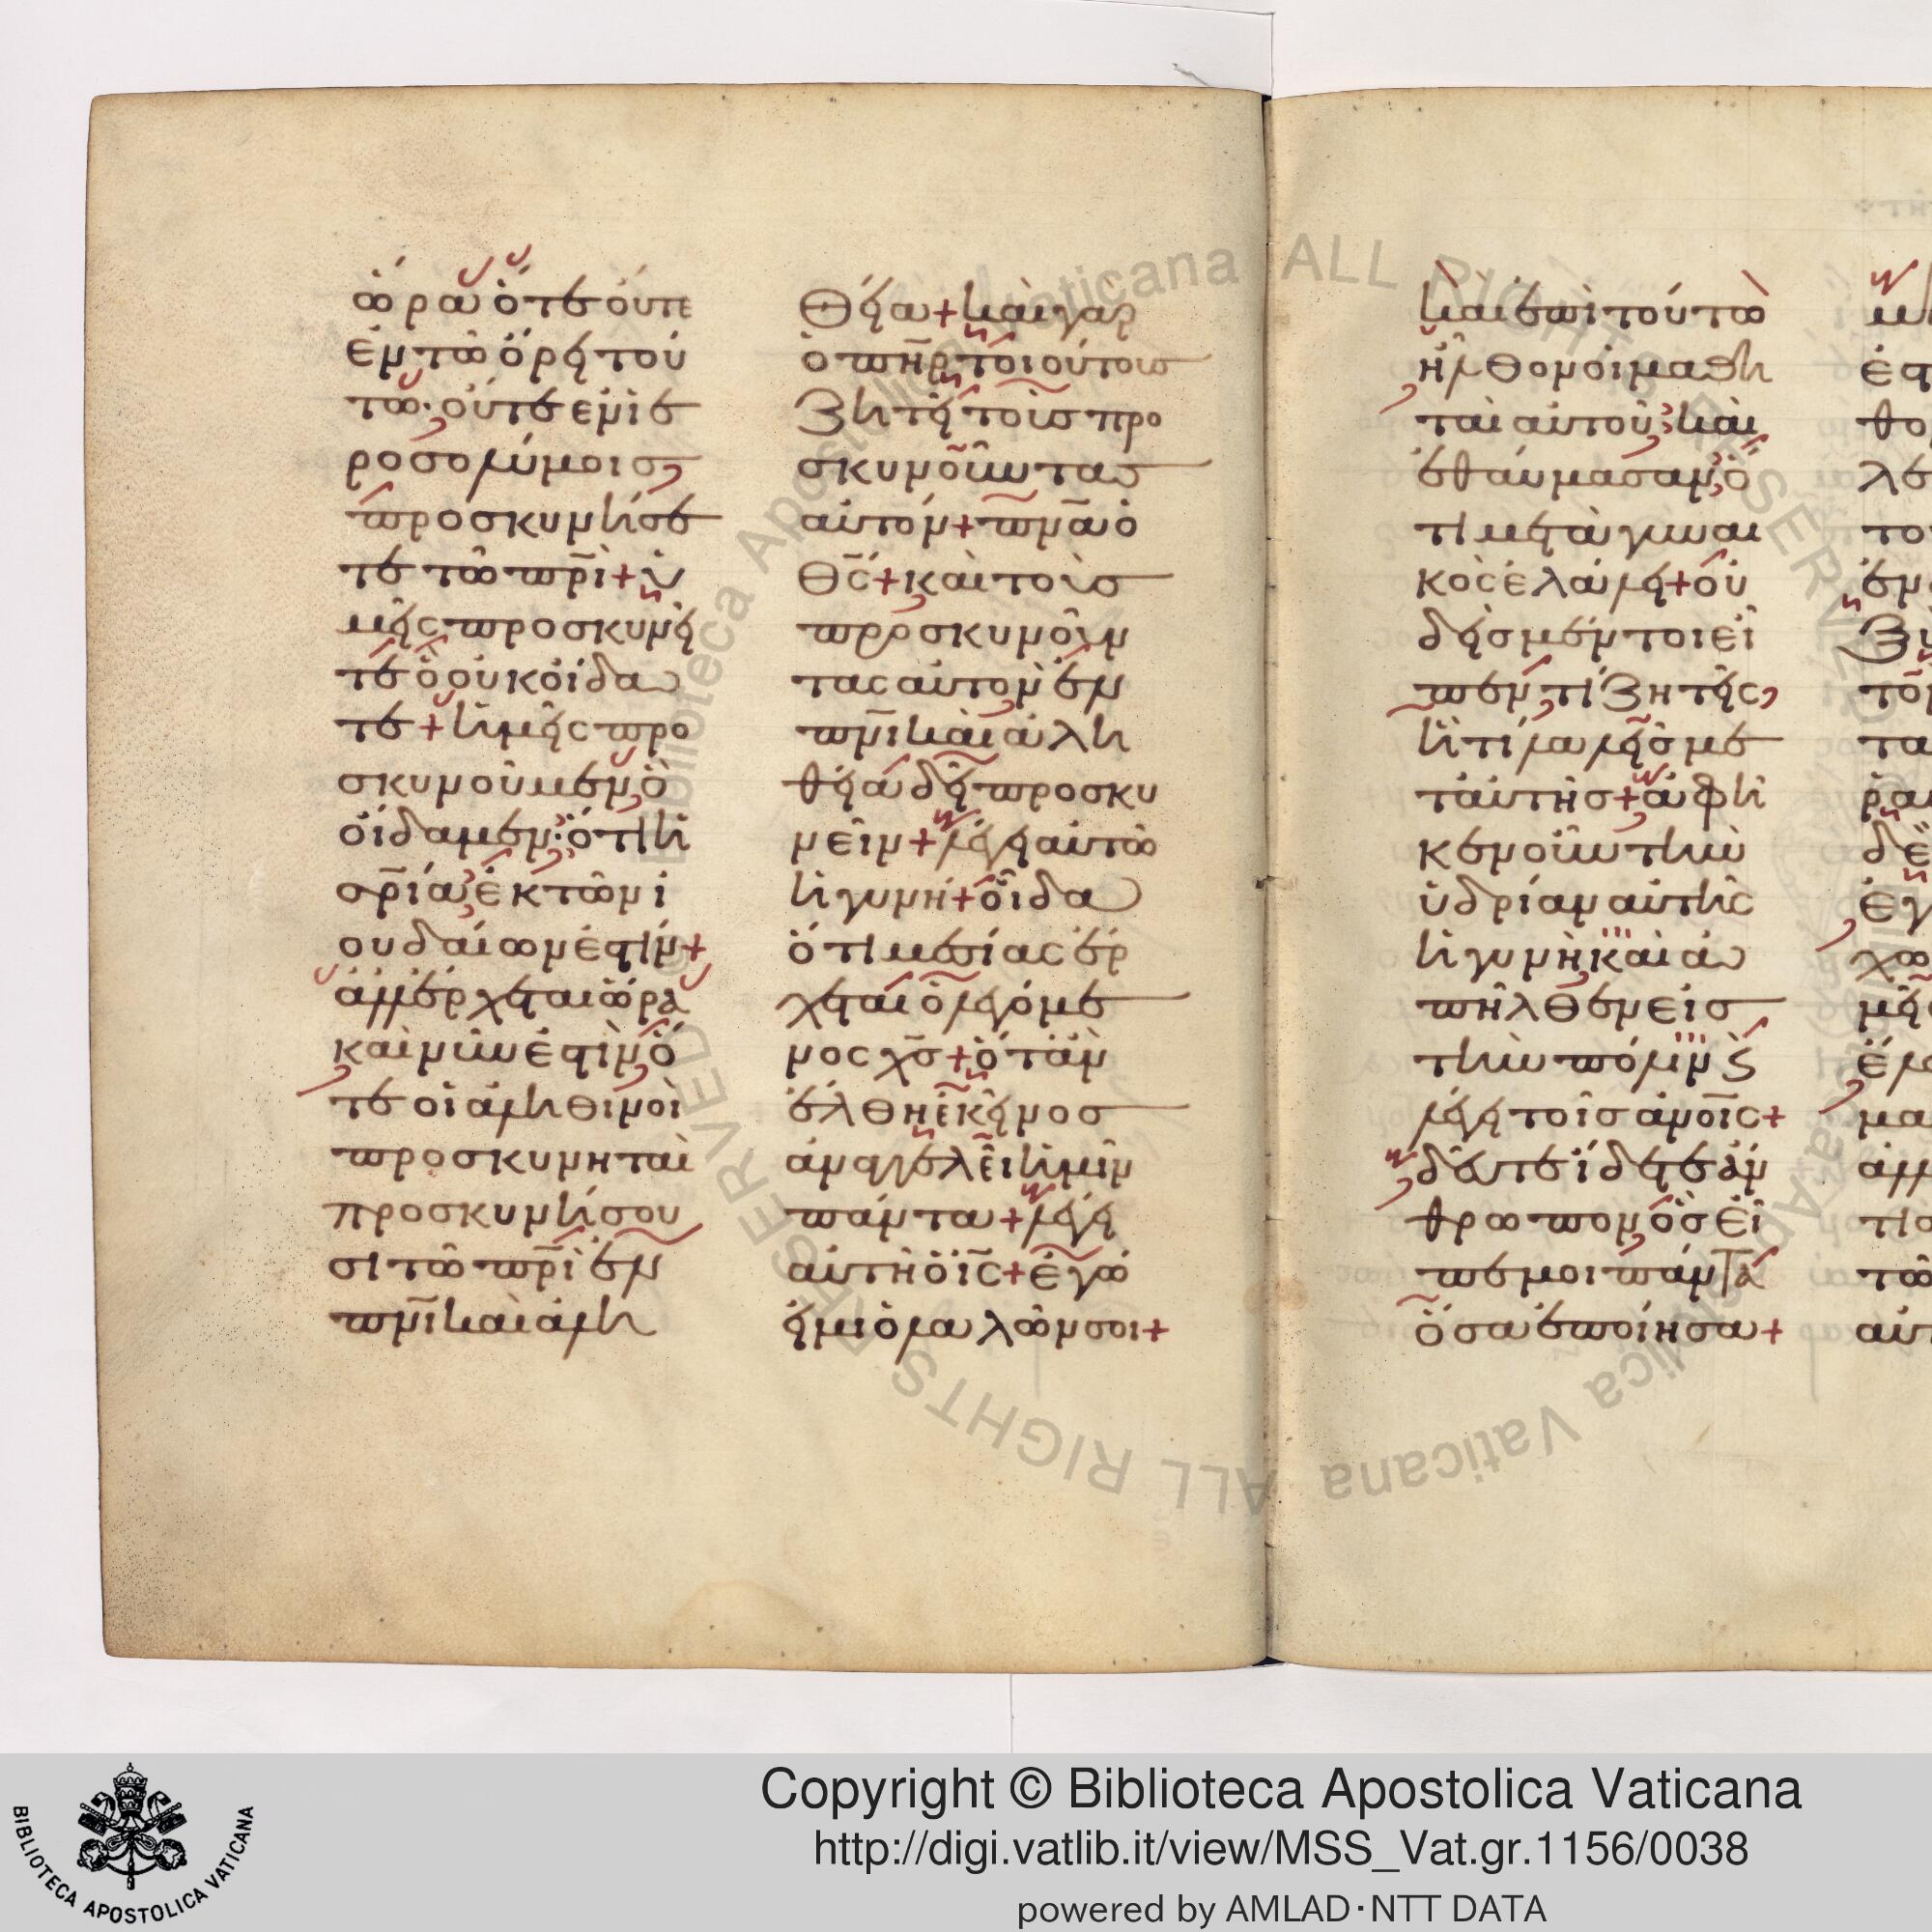 ὥρα ὅτε οὔτε
ἐν τῶ ὄρει τού
τω· οὔτε ἐν ἱε
ροσολύμοις
προσκυνήσε
τε τῶ πρ̅ι + ὑ
μεῖς προσκυνεῖ
τε ὃ οὐκ οἴδα
τε + ἡμεῖς προ
σκυνοῦμεν ὃ
οἴδαμεν· ὅτι ἡ
σρ̅ία ἐκ τῶν ἰ
ουδαίων ἐστίν +
ἀλλ' ἔρχεται ὥρα
καὶ νῦν ἐστὶν ὅ
τε οἱ ἀληθινοὶ
προσκυνηταὶ
προσκυνήσου
σι τῶ πρ̅ὶ ἐν
πν̅ι καὶ ἀλη
θεία + καὶ γὰρ
ὁ πη̅ρ τοιούτους
ζητεῖ τοὺς προ
σκυνοῦντας
αὐτόν + πν̅α ὁ
θ̅ς + καὶ τοὺς
προσκυνοῦν
τας αὐτὸν ἐν
πν̅ι καὶ ἀλη
θεία δεῖ προσκυ
νεῖν + λέγει αὐτῶ
ἡ γυνή + οἶδα
ὅτι μεσίας ἔρ
χεται ὁ λεγόμε
νος χ̅σ + ὅταν
ἔλθη ἐκεῖνος
ἀναγγελεῖ ἡμῖν
πάντα + λέγει
αὐτῆ ὁ ι̅ς + ἐγώ
εἰμι ὁ λαλῶν σοι +
καὶ ἐπὶ τούτω
ἦλθον οἱ μαθη
ταὶ αὐτοῦ· καὶ
ἐθαύμασαν ὅ
τι μετὰ γυναι
κὸς ἐλάλει + οὐ
δεὶς μέντοι εἶ
πεν τί ζητεῖς
ἢ τί λαλεῖς με
τ' αὐτῆς + ἀφῆ
κεν οὖν τὴν
ὑδρίαν αὐτῆς
ἡ γυνὴ καὶ ἀ
πῆλθεν εἰς
τὴν πόλιν ϗ
λέγει τοῖς ἀν̅οις +
δεῦτε ἴδετε ἄν
θρωπον ὃς εἶ
πε μοι πάντα
ὅσα ἐποίησα +
Copyright © Biblioteca Apostolica Vaticana
http://digi.vatlib.it/view/MSS_Vat.gr.1156/0038
powered by AMLAD·NTT DATA
BIBLIOTECA APOSTOLICA VATICANA